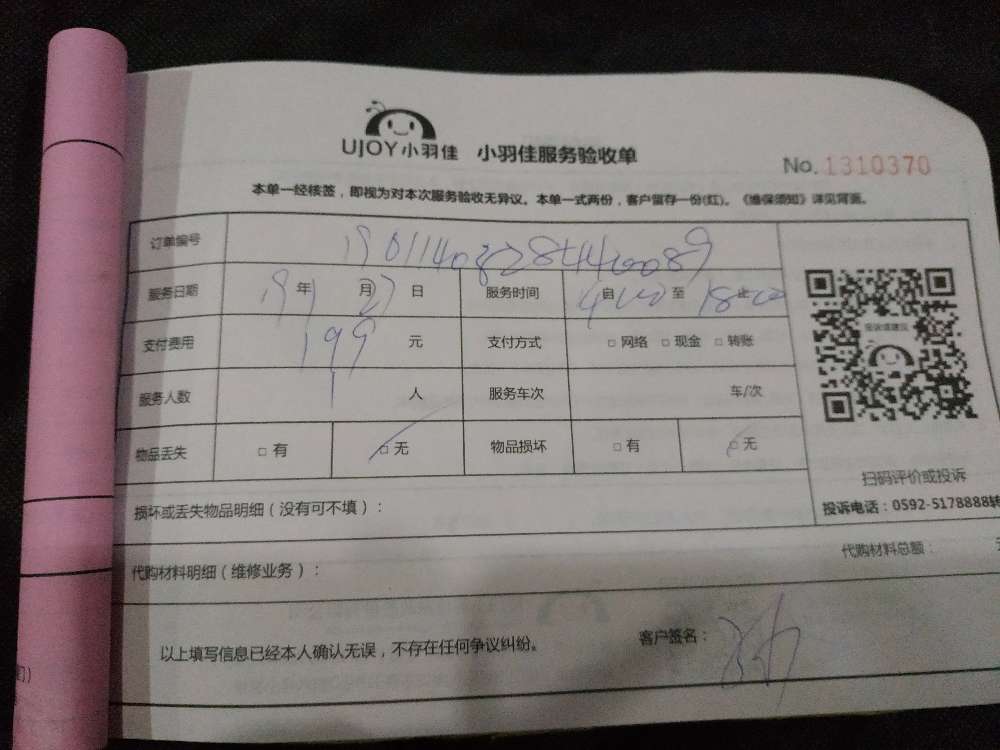 UJOY小羽佳 小羽佳服务验收单
No.1310370
本单一经核签，即视为对本次服务验收无异议。本单一式两份，客户留存一份(红)。《维保须知》详见背面。
订单编号
服务日期 19年1月27日 服务时间 自 至 18 止
支付费用 199 元 支付方式 □ 网络 □ 现金 □ 转账
投诉或建议
服务人数 1 人 服务车次 车/次
物品丢失 □ 有 □ 无 物品损坏 □ 有 □ 无
扫码评价或投诉
投诉电话：0592-5178888转
损坏或丢失物品明细（没有可不填）：
代购材料明细（维修业务）： 代购材料总额：
以上填写信息已经本人确认无误，不存在任何争议纠纷。 客户签名：